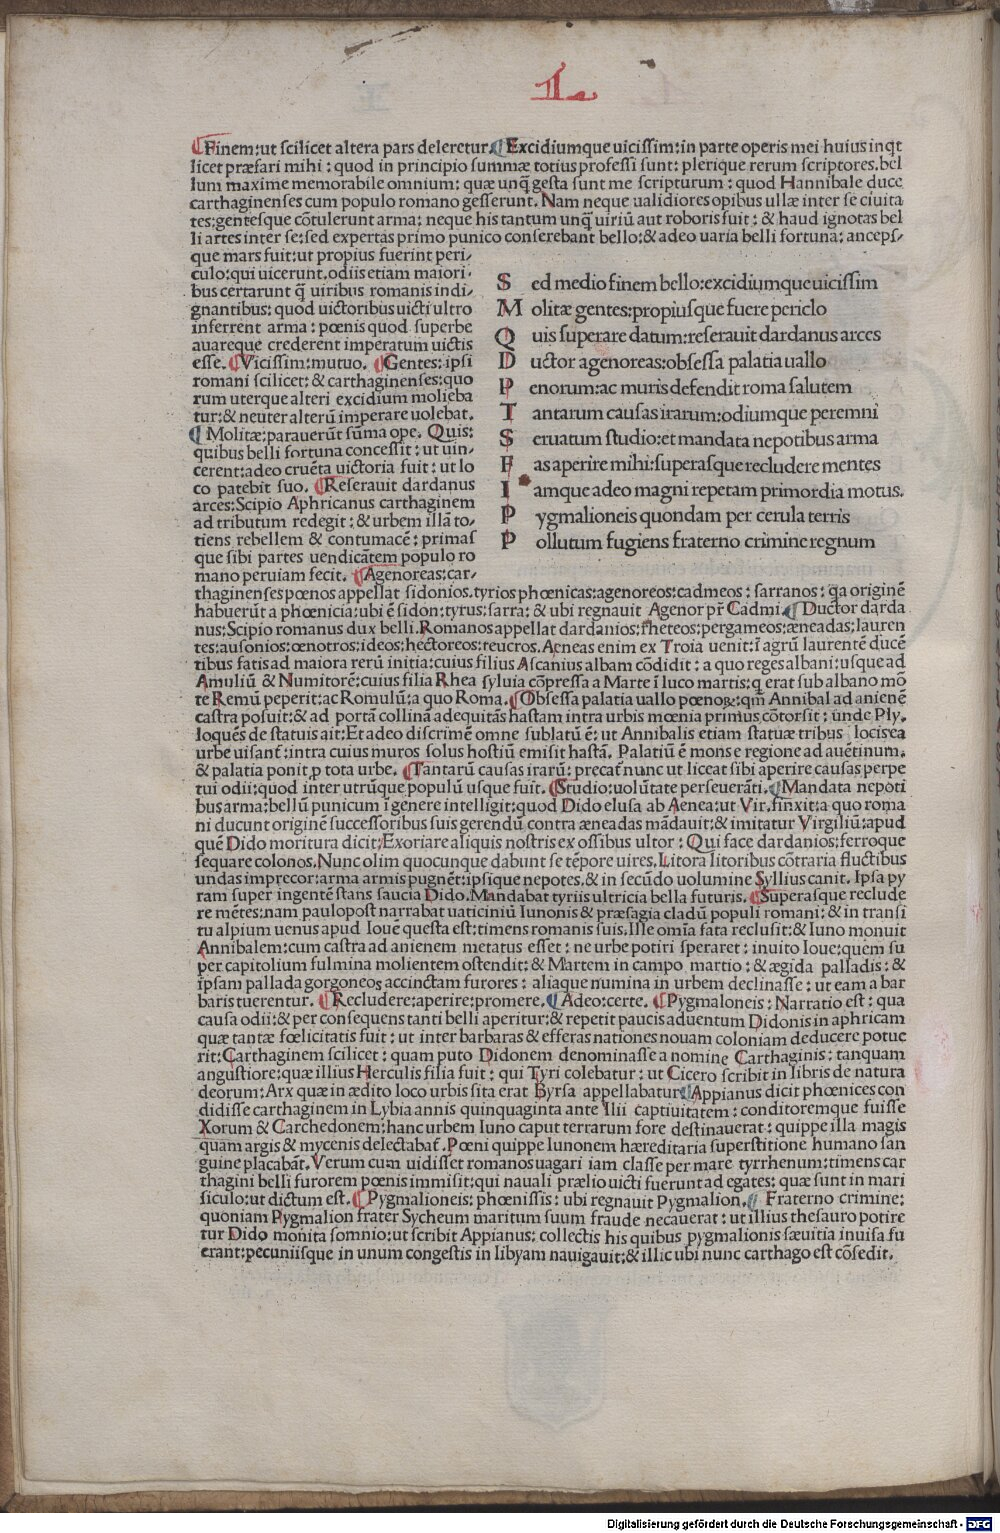 L
Finem:ut scilicet altera pars deleretur. Excidiumque uicissim:in parte operis mei huius inqt
licet præfari mihi: quod in principio summæ totius professi sunt: plerique rerum scriptores, bel
lum maxime memorabile omnium: quæ unq̃ gesta sunt me scripturum: quod Hannibale duce
carthaginenses cum populo romano gesserunt. Nam neque ualidiores opibus ullæ inter se ciuita
tes: gentesque cõtulerunt arma: neque his tantum unq̃ uiriũ aut roboris fuit: & haud ignotas bel
li artes inter se: sed expertas primo punico conserebant bello: & adeo uaria belli fortuna: anceps/
que mars fuit: ut propius fuerint peri/
culo: qui uicerunt, odiis etiam maiori/
bus certarunt q̃ uiribus romanis indi/
gnantibus: quod uictoribus uicti ultro
inferrent arma: pœnis quod superbe
auareque crederent imperatum uictis
esse. Vicissim: mutuo. Gentes: ipsi
romani scilicet: & carthaginenses: quo
rum uterque alteri excidium molieba
tur: & neuter alterũ imperare uolebat.
Molitæ: parauerũt sũma ope. Quis:
quibus belli fortuna concessit: ut uin/
cerent: adeo cruẽta uictoria fuit: ut lo
co patebit suo. Reserauit dardanus
arces: Scipio Aphricanus carthaginem
ad tributum redegit: & urbem illã to/
tiens rebellem & contumacẽ: primas
que sibi partes uendicãtem populo ro
mano peruiam fecit. Agenoreas: car/
S ed medio finem bello: excidiumque uicissim
M olitæ gentes: propiusque fuere periclo
Q uis superare datum: reserauit dardanus arces
D uctor agenoreas: obsessa palatia uallo
P enorum: ac muris defendit roma salutem
T antarum causas irarum: odiumque peremni
S eruatum studio: et mandata nepotibus arma
F as aperire mihi: superasque recludere mentes
I amque adeo magni repetam primordia motus.
P ygmalioneis quondam per cerula terris
P ollutum fugiens fraterno crimine regnum
thaginenses pœnos appellat sidonios, tyrios phœnicas: agenoreos: cadmeos: sarranos: q̃a originẽ
habuerũt a phœnicia: ubi ẽ sidon: tyrus: sarra: & ubi regnauit Agenor pr̃ Cadmi. Ductor darda
nus: Scipio romanus dux belli. Romanos appellat dardanios: rheteos: pergameos: æneadas: lauren
tes: ausonios: œnotros: ideos: hectoreos: teucros. Aeneas enim ex Troia uenit: ĩ agrũ laurentẽ ducẽ
tibus fatis ad maiora rerũ initia: cuius filius Ascanius albam cõdidit: a quo reges albani: usque ad
Amuliũ & Numitorẽ: cuius filia Rhea syluia cõpressa a Marte ĩ luco martis: q erat sub albano mõ
te Remũ peperit: ac Romulũ: a quo Roma. Obsessa palatia uallo pœnoꝝ: qm̃ Annibal ad anienẽ
castra posuit: & ad portã collinã adequitãs hastam intra urbis mœnia primus cõtorsit: unde Ply.
loquẽs de statuis ait: Et adeo discrimẽ omne sublatũ ẽ: ut Annibalis etiam statuæ tribus locis ea
urbe uisant̃: intra cuius muros solus hostiũ emisit hastã. Palatiũ ẽ mons e regione ad auẽtinum.
& palatia ponit ꝓ tota urbe. Tantarũ causas irarũ: precat̃ nunc ut liceat sibi aperire causas perpe
tui odii: quod inter utrũque populũ usque fuit. Studio: uolũtate perseuerãti. Mandata nepoti
bus arma: bellũ punicum ĩ genere intelligit: quod Dido elusa ab Aenea: ut Vir. finxit: a quo roma
ni ducunt originẽ successoribus suis gerendũ contra æneadas mãdauit: & imitatur Virgiliũ: apud
quẽ Dido moritura dicit: Exoriare aliquis nostris ex ossibus ultor: Qui face dardanios: ferroque
sequare colonos. Nunc olim quocunque dabunt se tẽpore uires. Litora litoribus cõtraria fluctibus
undas imprecor: arma armis pugnẽt: ipsique nepotes. & in secũdo uolumine Syllius canit. Ipsa py
ram super ingentẽ stans saucia Dido. Mandabat tyriis ultricia bella futuris. Superasque reclude
re mẽtes: nam paulopost narrabat uaticiniũ Iunonis & præsagia cladũ populi romani: & in transi
tu alpium uenus apud Iouẽ questa est: timens romanis suis. Ille omĩa fata reclusit: & Iuno monuit
Annibalem: cum castra ad anienem metatus esset: ne urbe potiri speraret: inuito Ioue: quem su
per capitolium fulmina molientem ostendit: & Martem in campo martio: & ægida palladis: &
ipsam pallada gorgoneos accinctam furores: aliaque numina in urbem declinasse: ut eam a bar
baris tuerentur. Recludere: aperire: promere. Adeo: certe. Pygmaloneis: Narratio est: qua
causa odii: & per consequens tanti belli aperitur: & repetit paucis aduentum Didonis in aphricam
quæ tantæ fœlicitatis fuit: ut inter barbaras & efferas nationes nouam coloniam deducere potue
rit: Carthaginem scilicet: quam puto Didonem denominasse a nomine Carthaginis: tanquam
angustiore: quæ illius Herculis filia fuit: qui Tyri colebatur: ut Cicero scribit in libris de natura
deorum: Arx quæ in ædito loco urbis sita erat Byrsa appellabatur. Appianus dicit phœnices con
didisse carthaginem in Lybia annis quinquaginta ante Ilii captiuitatem: conditoremque fuisse
Xorum & Carchedonem: hanc urbem Iuno caput terrarum fore destinauerat: quippe illa magis
quam argis & mycenis delectabat̃. Pœni quippe Iunonem hæreditaria superstitione humano san
guine placabãt. Verum cum uidisset romanos uagari iam classe per mare tyrrhenum: timens car
thagini belli furorem pœnis immisit: qui nauali prælio uicti fuerunt ad egates: quæ sunt in mari
siculo: ut dictum est. Pygmalioneis: phœnissis: ubi regnauit Pygmalion. Fraterno crimine:
quoniam Pygmalion frater Sycheum maritum suum fraude necauerat: ut illius thesauro potire
tur Dido monita somnio: ut scribit Appianus: collectis his quibus pygmalionis sæuitia inuisa fu
erant: pecuniisque in unum congestis in libyam nauigauit: & illic ubi nunc carthago est cõsedit.
Digitalisierung gefördert durch die Deutsche Forschungsgemeinschaft - DFG